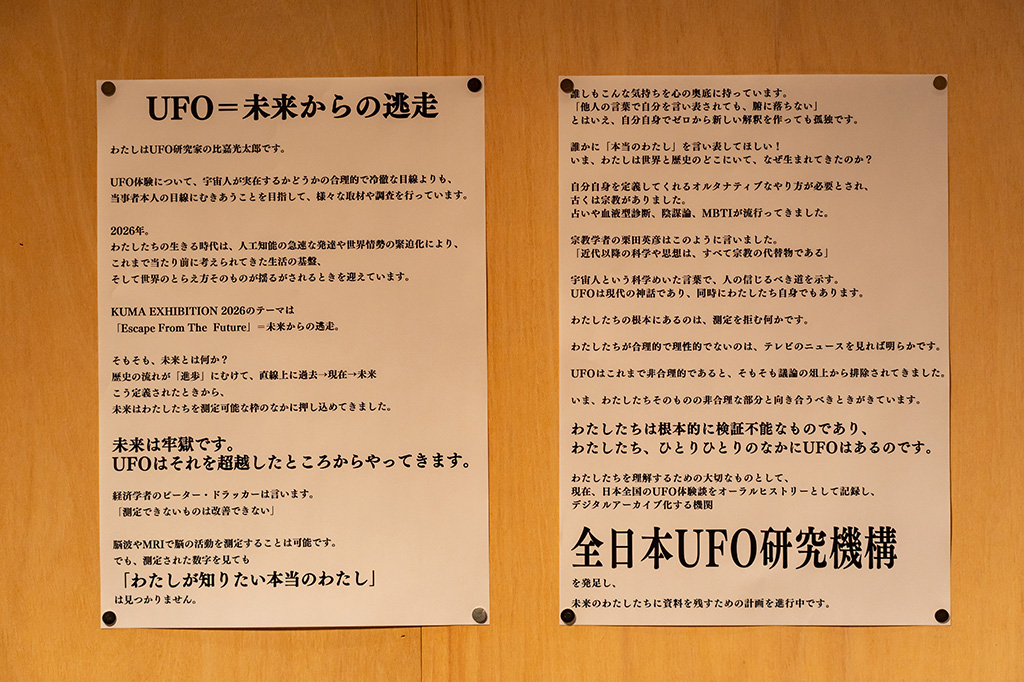 UFO＝未来からの逃走
わたしはUFO研究家の比嘉光太郎です。
UFO体験について、宇宙人が実在するかどうかの合理的で冷徹な目線よりも、
当事者本人の目線にむきあうことを目指して、様々な取材や調査を行っています。
2026年。
わたしたちの生きる時代は、人工知能の急速な発達や世界情勢の緊迫化により、
これまで当たり前に考えられてきた生活の基盤、
そして世界のとらえ方そのものが揺るがされるときを迎えています。
KUMA EXHIBITION 2026のテーマは
「Escape From The Future」＝未来からの逃走。
そもそも、未来とは何か？
歴史の流れが「進歩」にむけて、直線上に過去→現在→未来
こう定義されたときから、
未来はわたしたちを測定可能な枠のなかに押し込めてきました。
未来は牢獄です。
UFOはそれを超越したところからやってきます。
経済学者のピーター・ドラッカーは言います。
「測定できないものは改善できない」
脳波やMRIで脳の活動を測定することは可能です。
でも、測定された数字を見ても
「わたしが知りたい本当のわたし」
は見つかりません。
誰しもこんな気持ちを心の奥底に持っています。
「他人の言葉で自分を言い表されても、腑に落ちない」
とはいえ、自分自身でゼロから新しい解釈を作っても孤独です。
誰かに「本当のわたし」を言い表してほしい！
いま、わたしは世界と歴史のどこにいて、なぜ生まれてきたのか？
自分自身を定義してくれるオルタナティブなやり方が必要とされ、
古くは宗教がありました。
占いや血液型診断、陰謀論、MBTIが流行ってきました。
宗教学者の栗田英彦はこのように言いました。
「近代以降の科学や思想は、すべて宗教の代替物である」
宇宙人という科学めいた言葉で、人の信じるべき道を示す。
UFOは現代の神話であり、同時にわたしたち自身でもあります。
わたしたちの根本にあるのは、測定を拒む何かです。
わたしたちが合理的で理性的でないのは、テレビのニュースを見れば明らかです。
UFOはこれまで非合理的であると、そもそも議論の俎上から排除されてきました。
いま、わたしたちそのものの非合理な部分と向き合うべきときがきています。
わたしたちは根本的に検証不能なものであり、
わたしたち、ひとりひとりのなかにUFOはあるのです。
わたしたちを理解するための大切なものとして、
現在、日本全国のUFO体験談をオーラルヒストリーとして記録し、
デジタルアーカイブ化する機関
全日本UFO研究機構
を発足し、
未来のわたしたちに資料を残すための計画を進行中です。